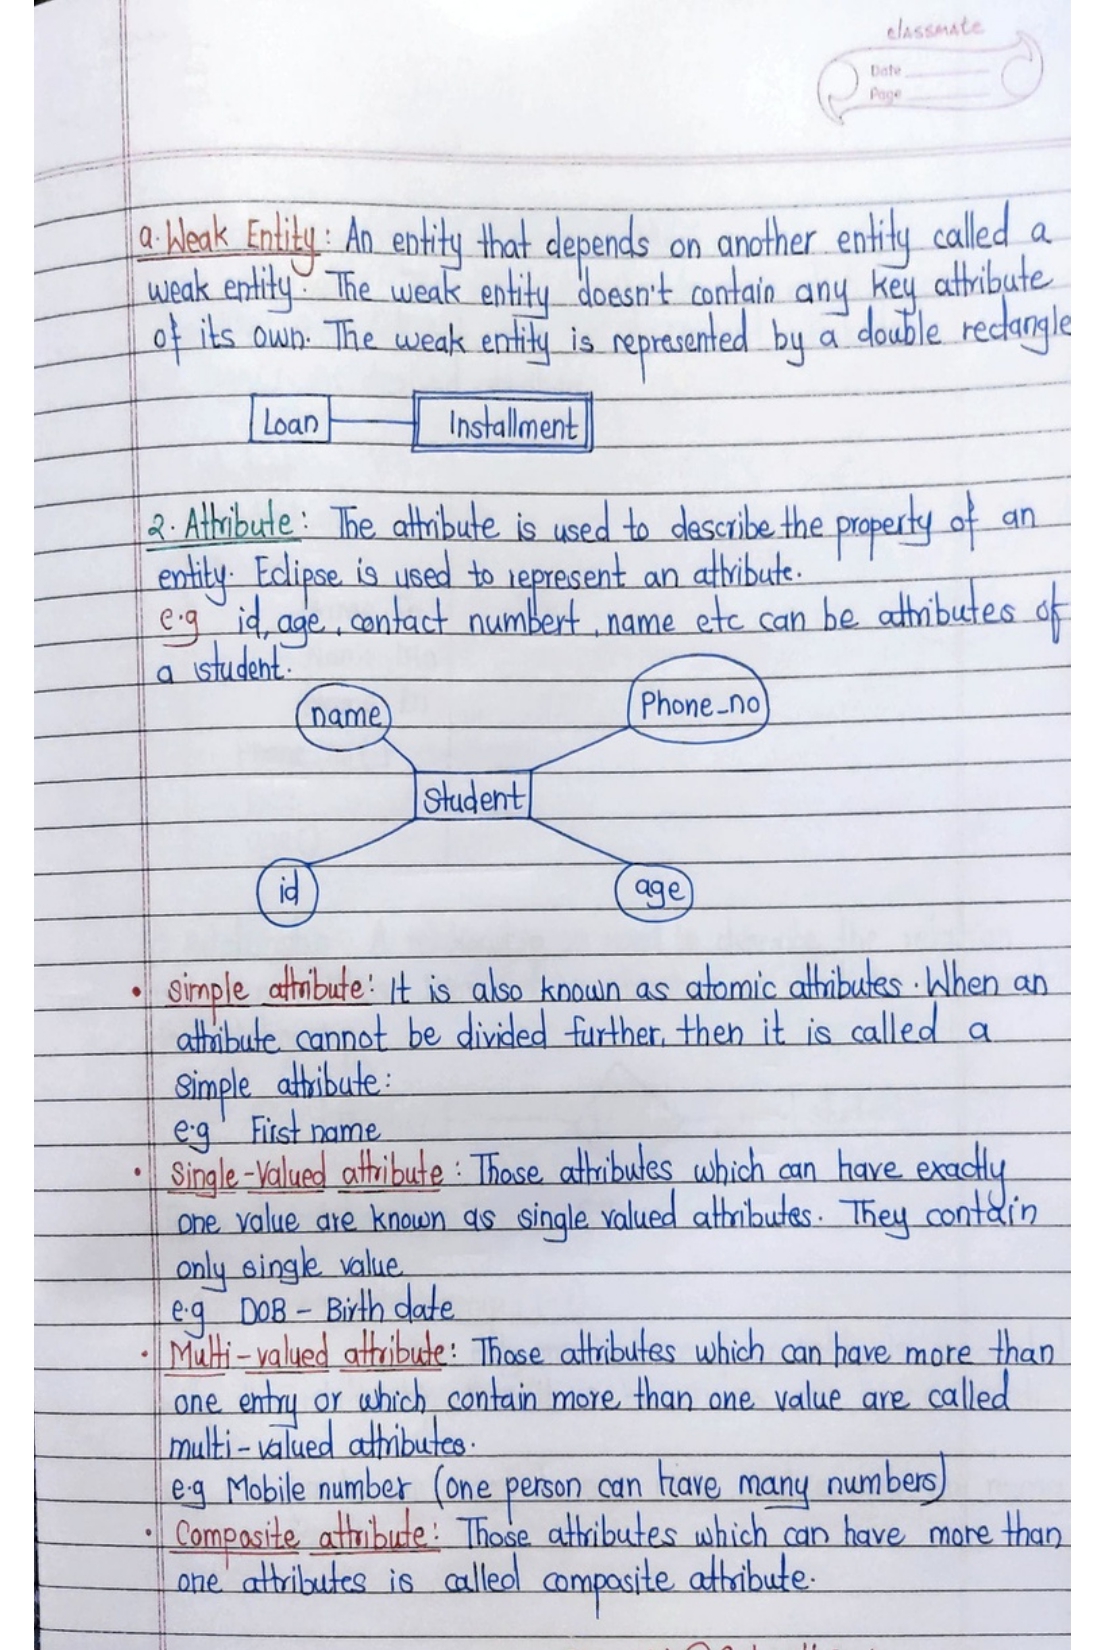 classmate
Date
Page
a. Weak Entity: An entity that depends on another entity called a
weak entity. The weak entity doesn't contain any key attribute
of its own. The weak entity is represented by a double rectangle
Loan
Installment
2. Attribute: The attribute is used to describe the property of an
entity. Eclipse is used to represent an attribute.
e.g id, age, contact numbert, name etc can be attributes of
a student.
name
Phone_no
Student
id
age
• Simple attribute: It is also known as atomic attributes. When an
attribute cannot be divided further, then it is called a
simple attribute:
e.g First name
• Single-Valued attribute: Those attributes which can have exactly
one value are known as single valued attributes. They contain
only single value
e.g DOB - Birth date
• Multi-valued attribute: Those attributes which can have more than
one entry or which contain more than one value are called
multi-valued attributes.
e.g Mobile number (one person can have many numbers)
• Composite attribute: Those attributes which can have more than
one attributes is called composite attribute.